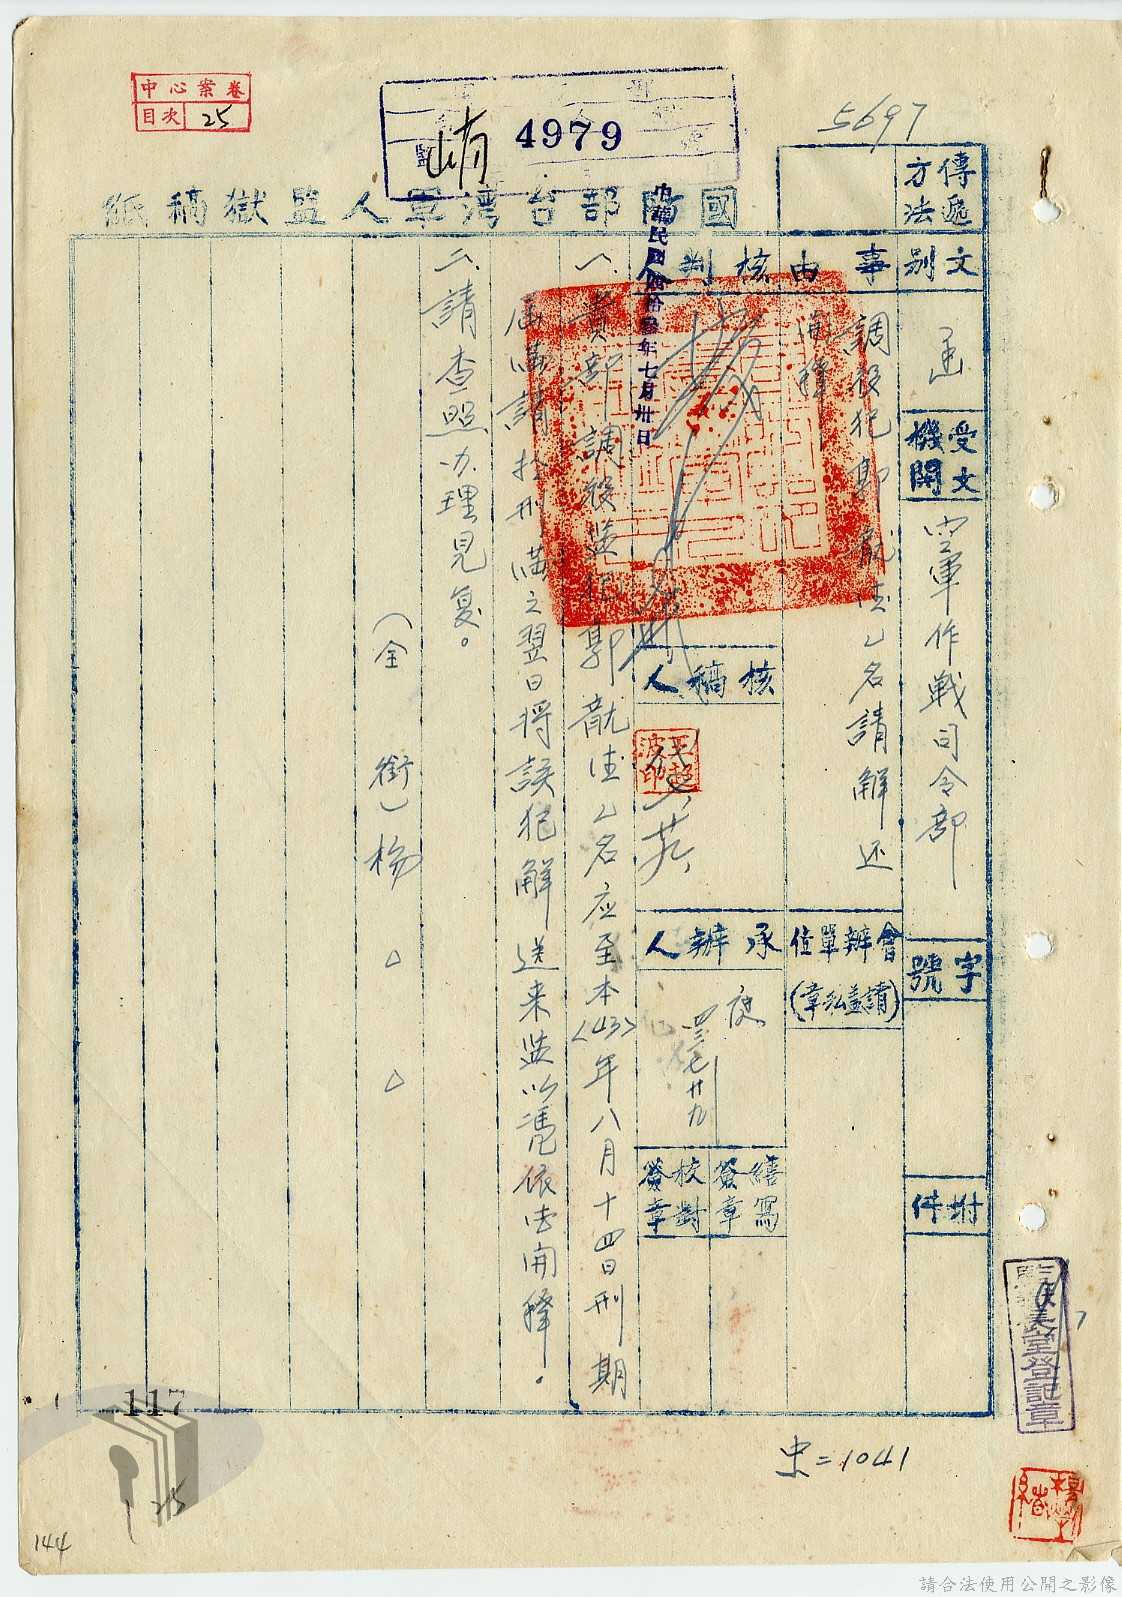 中心案卷
目次 25
4979
5697
國防部台灣軍人監獄稿紙
傳遞方法
文別
函
受文機關
空軍作战司令部
字號
附件
事由
調役犯郭龍法乙名請解还
開釋
會辦單位
(請蓋私章)
核判
中華民國肆拾叁年七月卅日
核稿人
承辦人
四三七廿九
繕寫簽章
校對簽章
一、貴部調役监犯郭龍法乙名应至本<43>年八月十四日刑期
屆滿請於刑满之翌日將該犯解送来监以憑依法開釋。
二、請查照办理見复。
(全銜)楊△△
登記章
忠=1041
117
25
144
請合法使用公開之影像